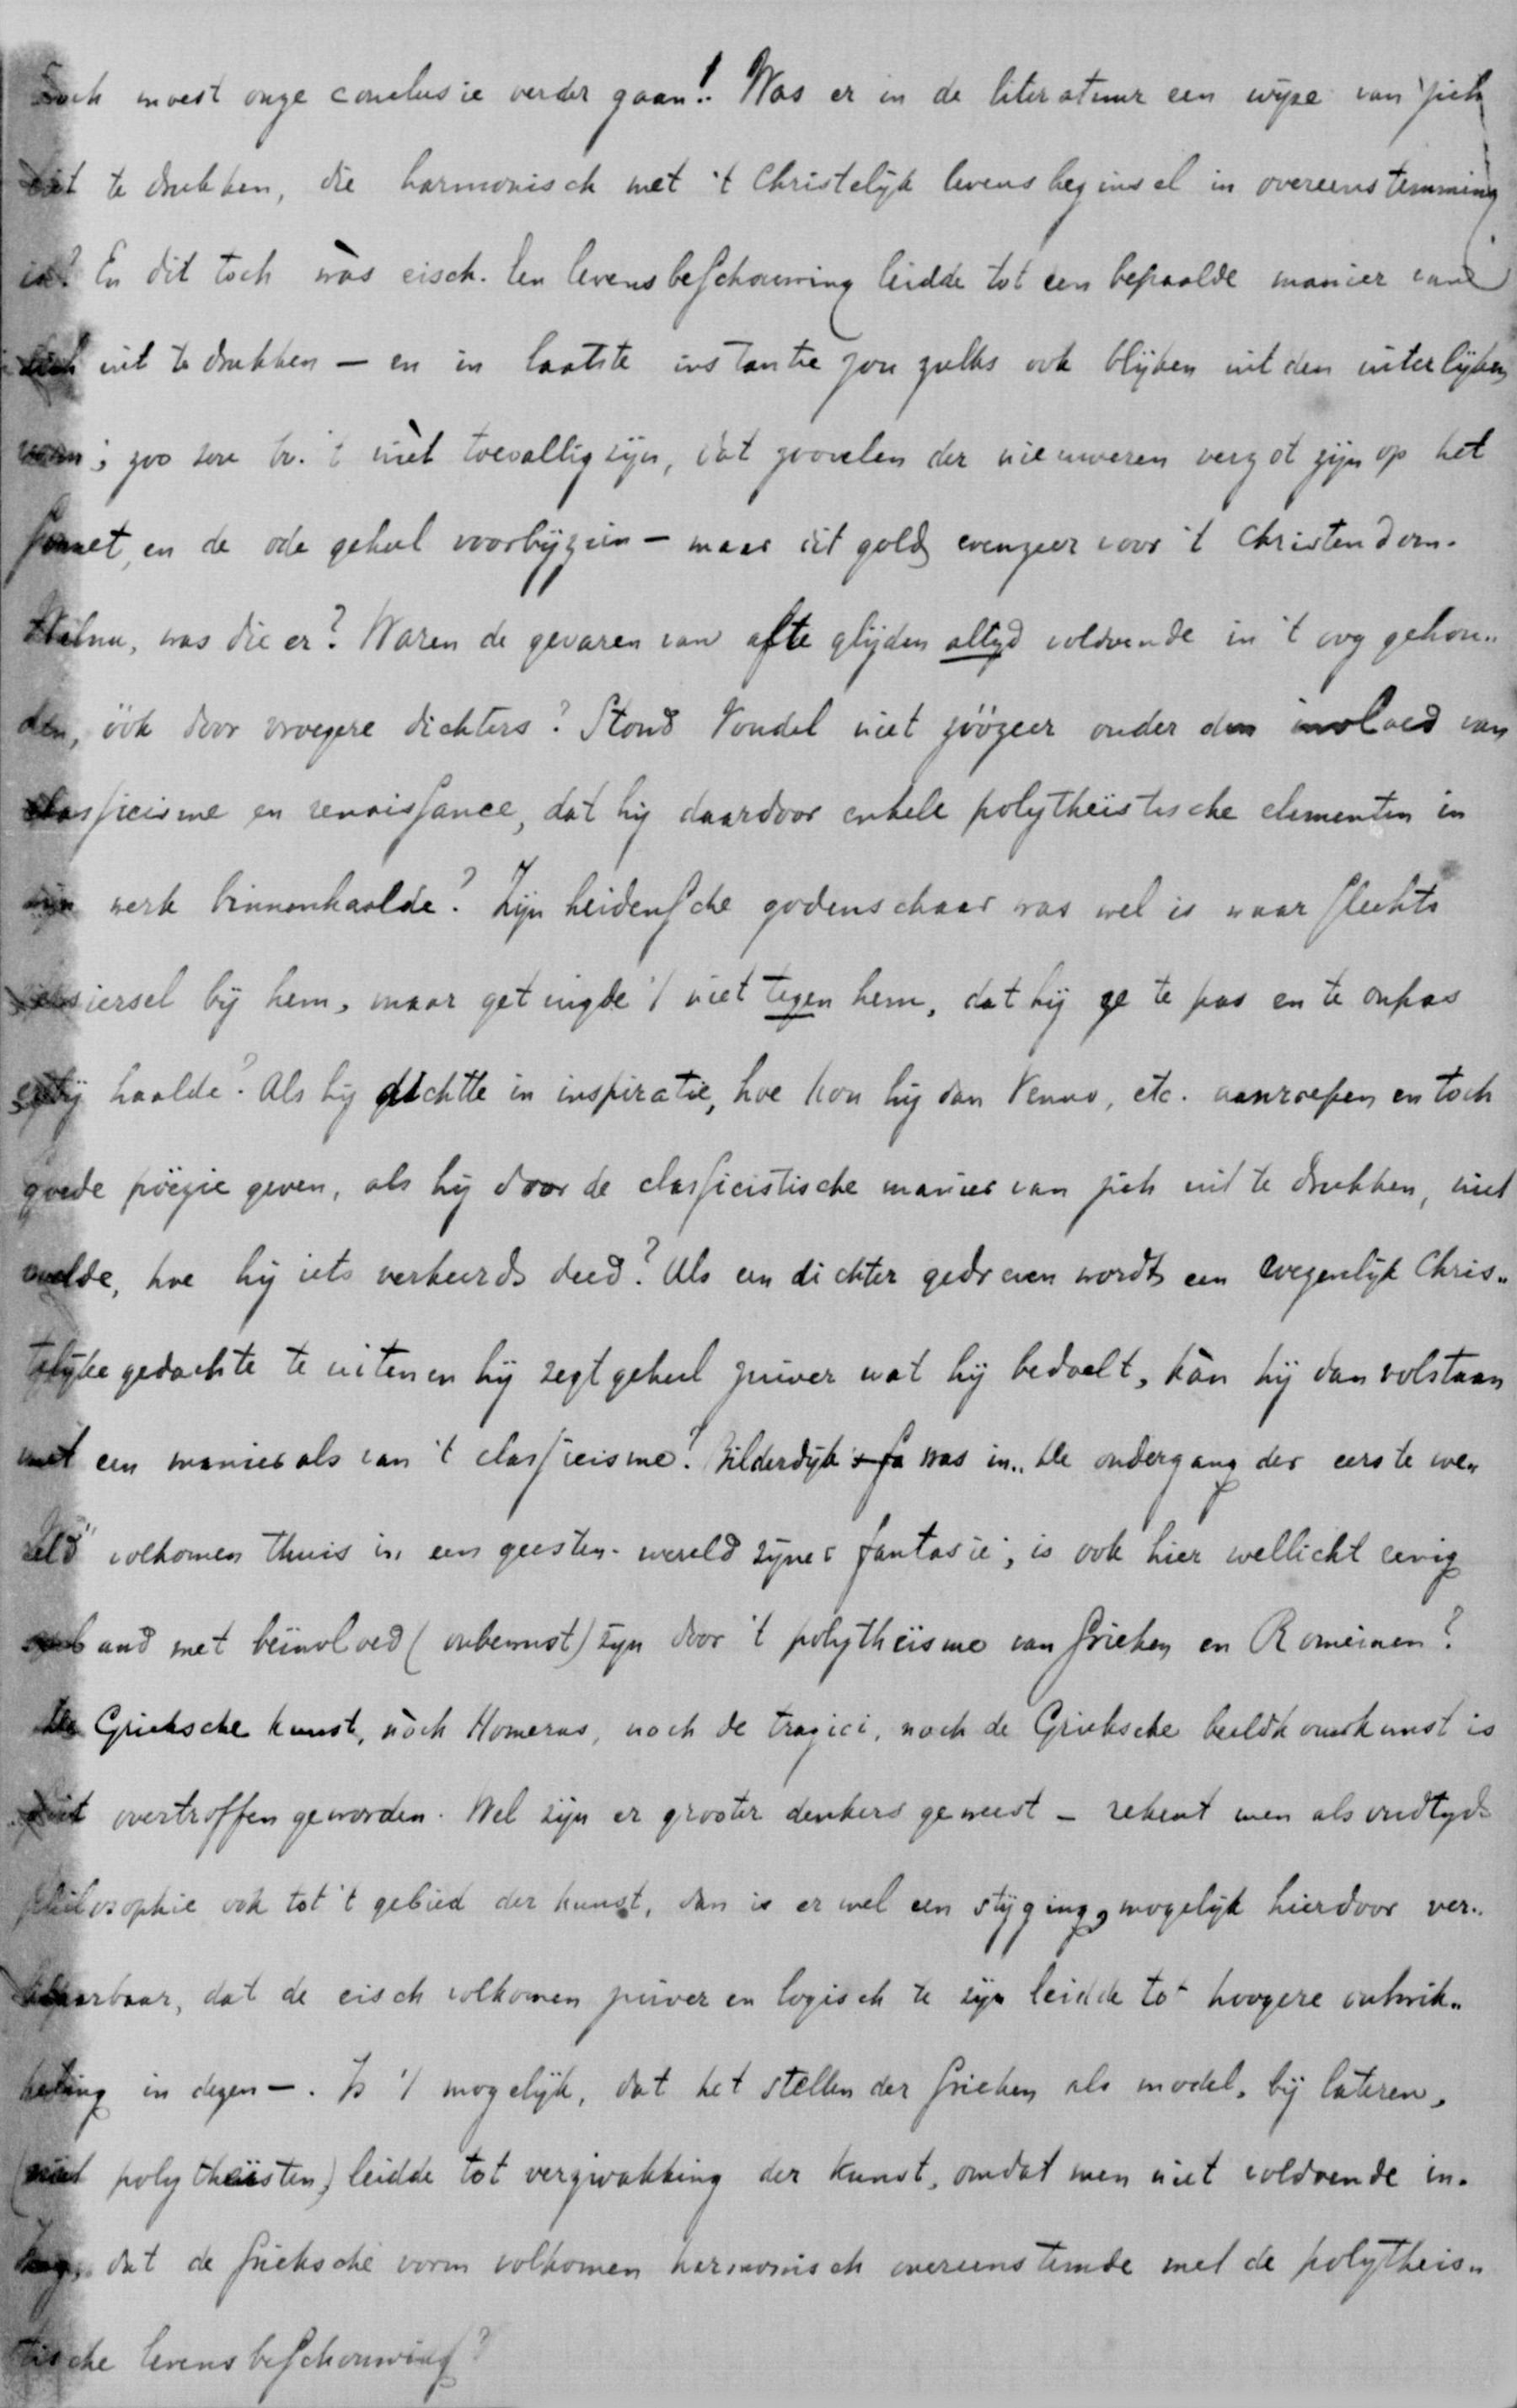 Toch moest onze conclusie verder gaan! Was er in de literatuur een wijze van zich
uit te drukken, die harmonisch met 't Christelijk levensbeginsel in overeenstemming
is? En dit toch wàs eisch. Een levensbeschouwing leidde tot een bepaalde manier van
zich uit te drukken — en in laatste instantie zou zulks ook blijken uit den uiterlijken
vorm; zoo zou bv. 't niet toevallig zijn, dat zoovelen der nieuweren verzot zijn op het
sonnet, en de ode geheel voorbijzien — maar dit gold evenzeer voor 't Christendom.
Welnu, was die er? Waren de gevaren van af te glijden altijd voldoende in 't oog gehou„
den, óók door vroegere dichters? Stond Vondel niet zóózeer onder den invloed van
classicisme en renaissance, dat hij daardoor enkele polytheïstische elementen in
zijn werk binnenhaalde? Zijn heidensche godenschaar was wel is waar slechts
versiersel bij hem, maar getuigde 't niet tegen hem, dat hij ze te pas en te onpas
erbij haalde? Als hij dichtte in inspiratie, hoe kon hij dan Venus, etc. aanroepen en toch
goede poëzie geven, als hij door de classicistische manier van zich uit te drukken, niet
voelde, hoe hij iets verkeerds deed? Als een dichter gedreven wordt een wezenlijk Chris„
telijke gedachte te uiten en hij zegt geheel zuiver wat hij bedoelt, kàn hij dan volstaan
met een manier als van 't classicisme? Bilderdijk was in „De ondergang der eerste we„
reld" volkomen thuis in een geesten-wereld zijner fantasie; is ook hier wellicht eenig
verband met beïnvloed (onbewust) zijn door 't polytheïsme van Grieken en Romeinen?
De Grieksche kunst, nòch Homerus, noch de tragici, noch de Grieksche beeldhouwkunst is
ooit overtroffen geworden. Wel zijn er grooter denkers geweest — rekent men als oudtijds
philosophie ook tot 't gebied der kunst, dan is er wel een stijging, mogelijk hierdoor ver„
klaarbaar, dat de eisch volkomen zuiver en logisch te zijn leidde tot hoogere ontwik„
keling in dezen —. Is 't mogelijk, dat het stellen der Grieken als model, bij lateren,
(niet polytheïsten,) leidde tot verzwakking der kunst, omdat men niet voldoende in-
zag, dat de Grieksche vorm volkomen harmonisch overeenstemde met de polytheïs„
tische levensbeschouwing?